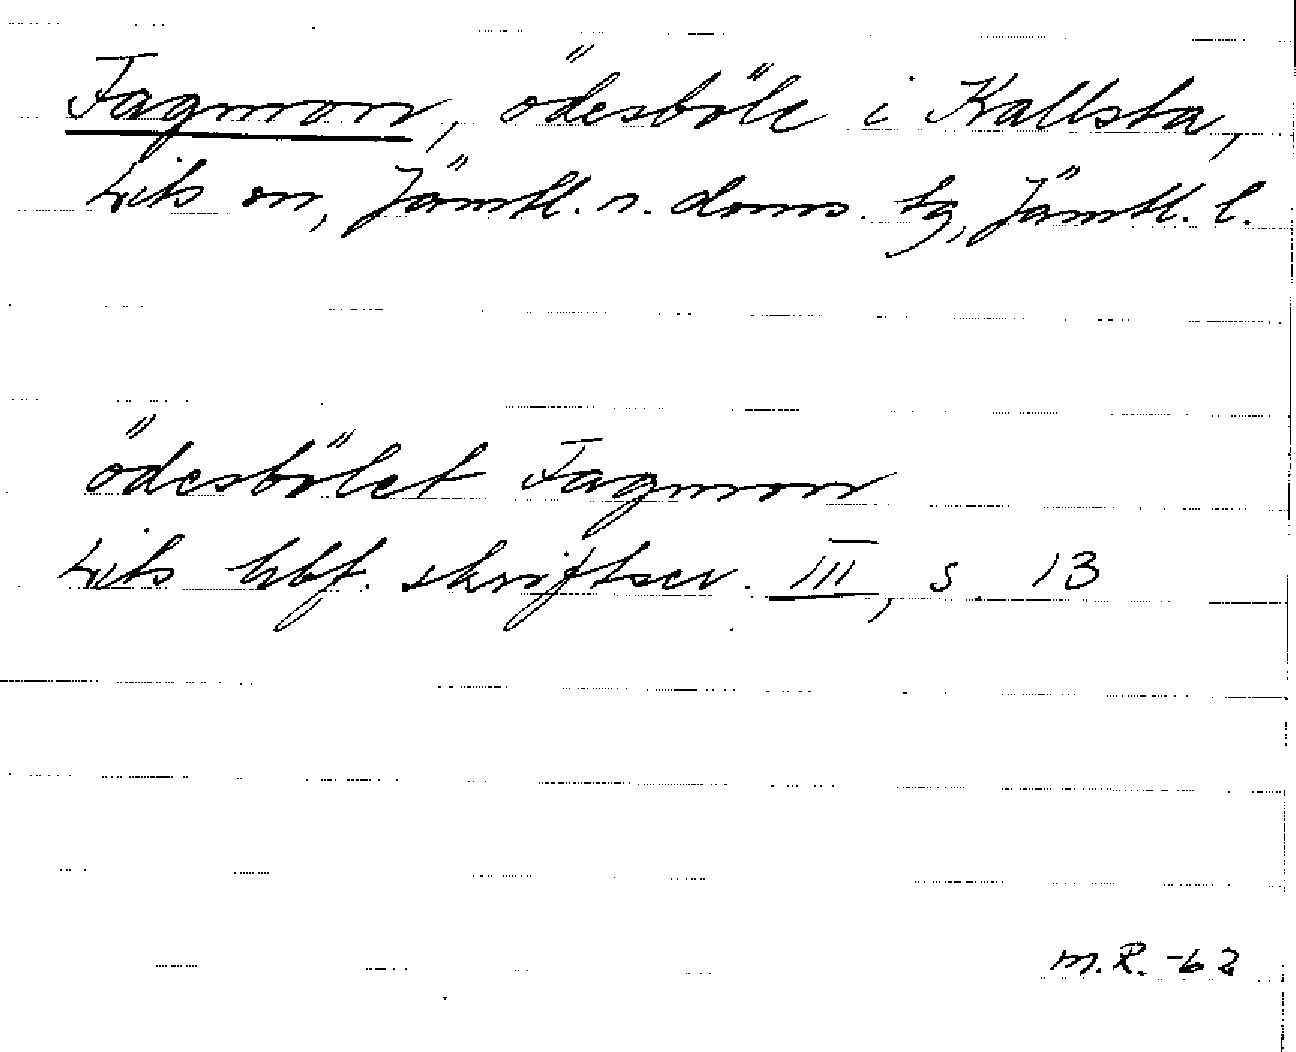 Fagmon, ödesböle i Kallsta,
Lits sn, Jämtl. n. doms. tg, Jämtl. l.
ödesbölet Fagmon
Lits hbf. skriftser. III, s. 13
M.R. -62